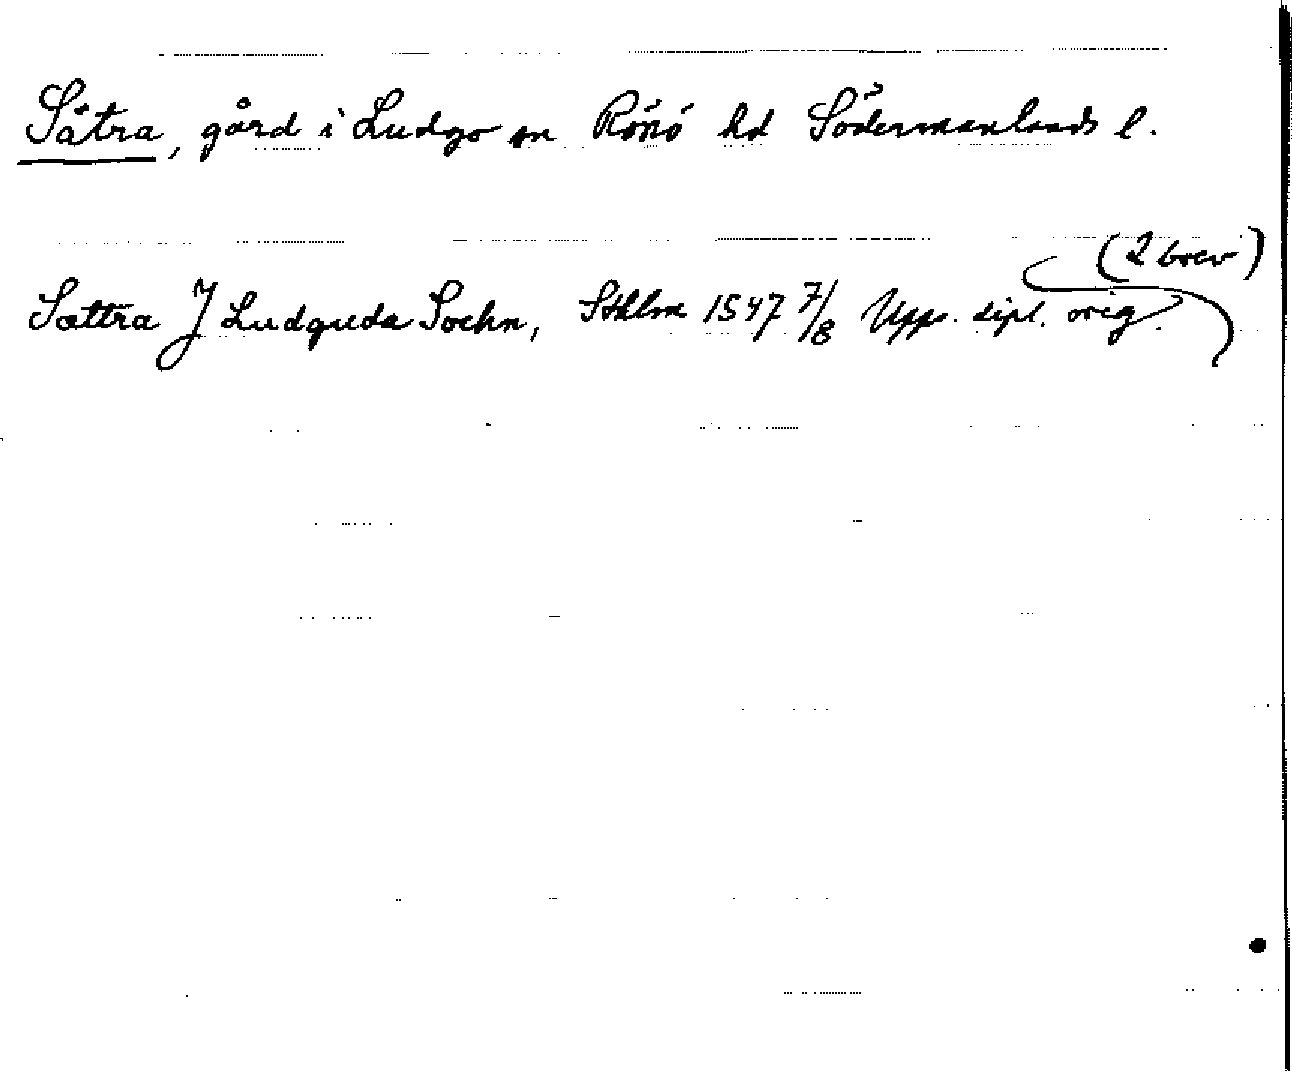 Sätra, gård i Ludgo sn Rönö hd Södermanlands l.
(2 brev)
Sattra J Ludguda Sochn, Sthlm 1547 7/8 Upps. dipl. orig.